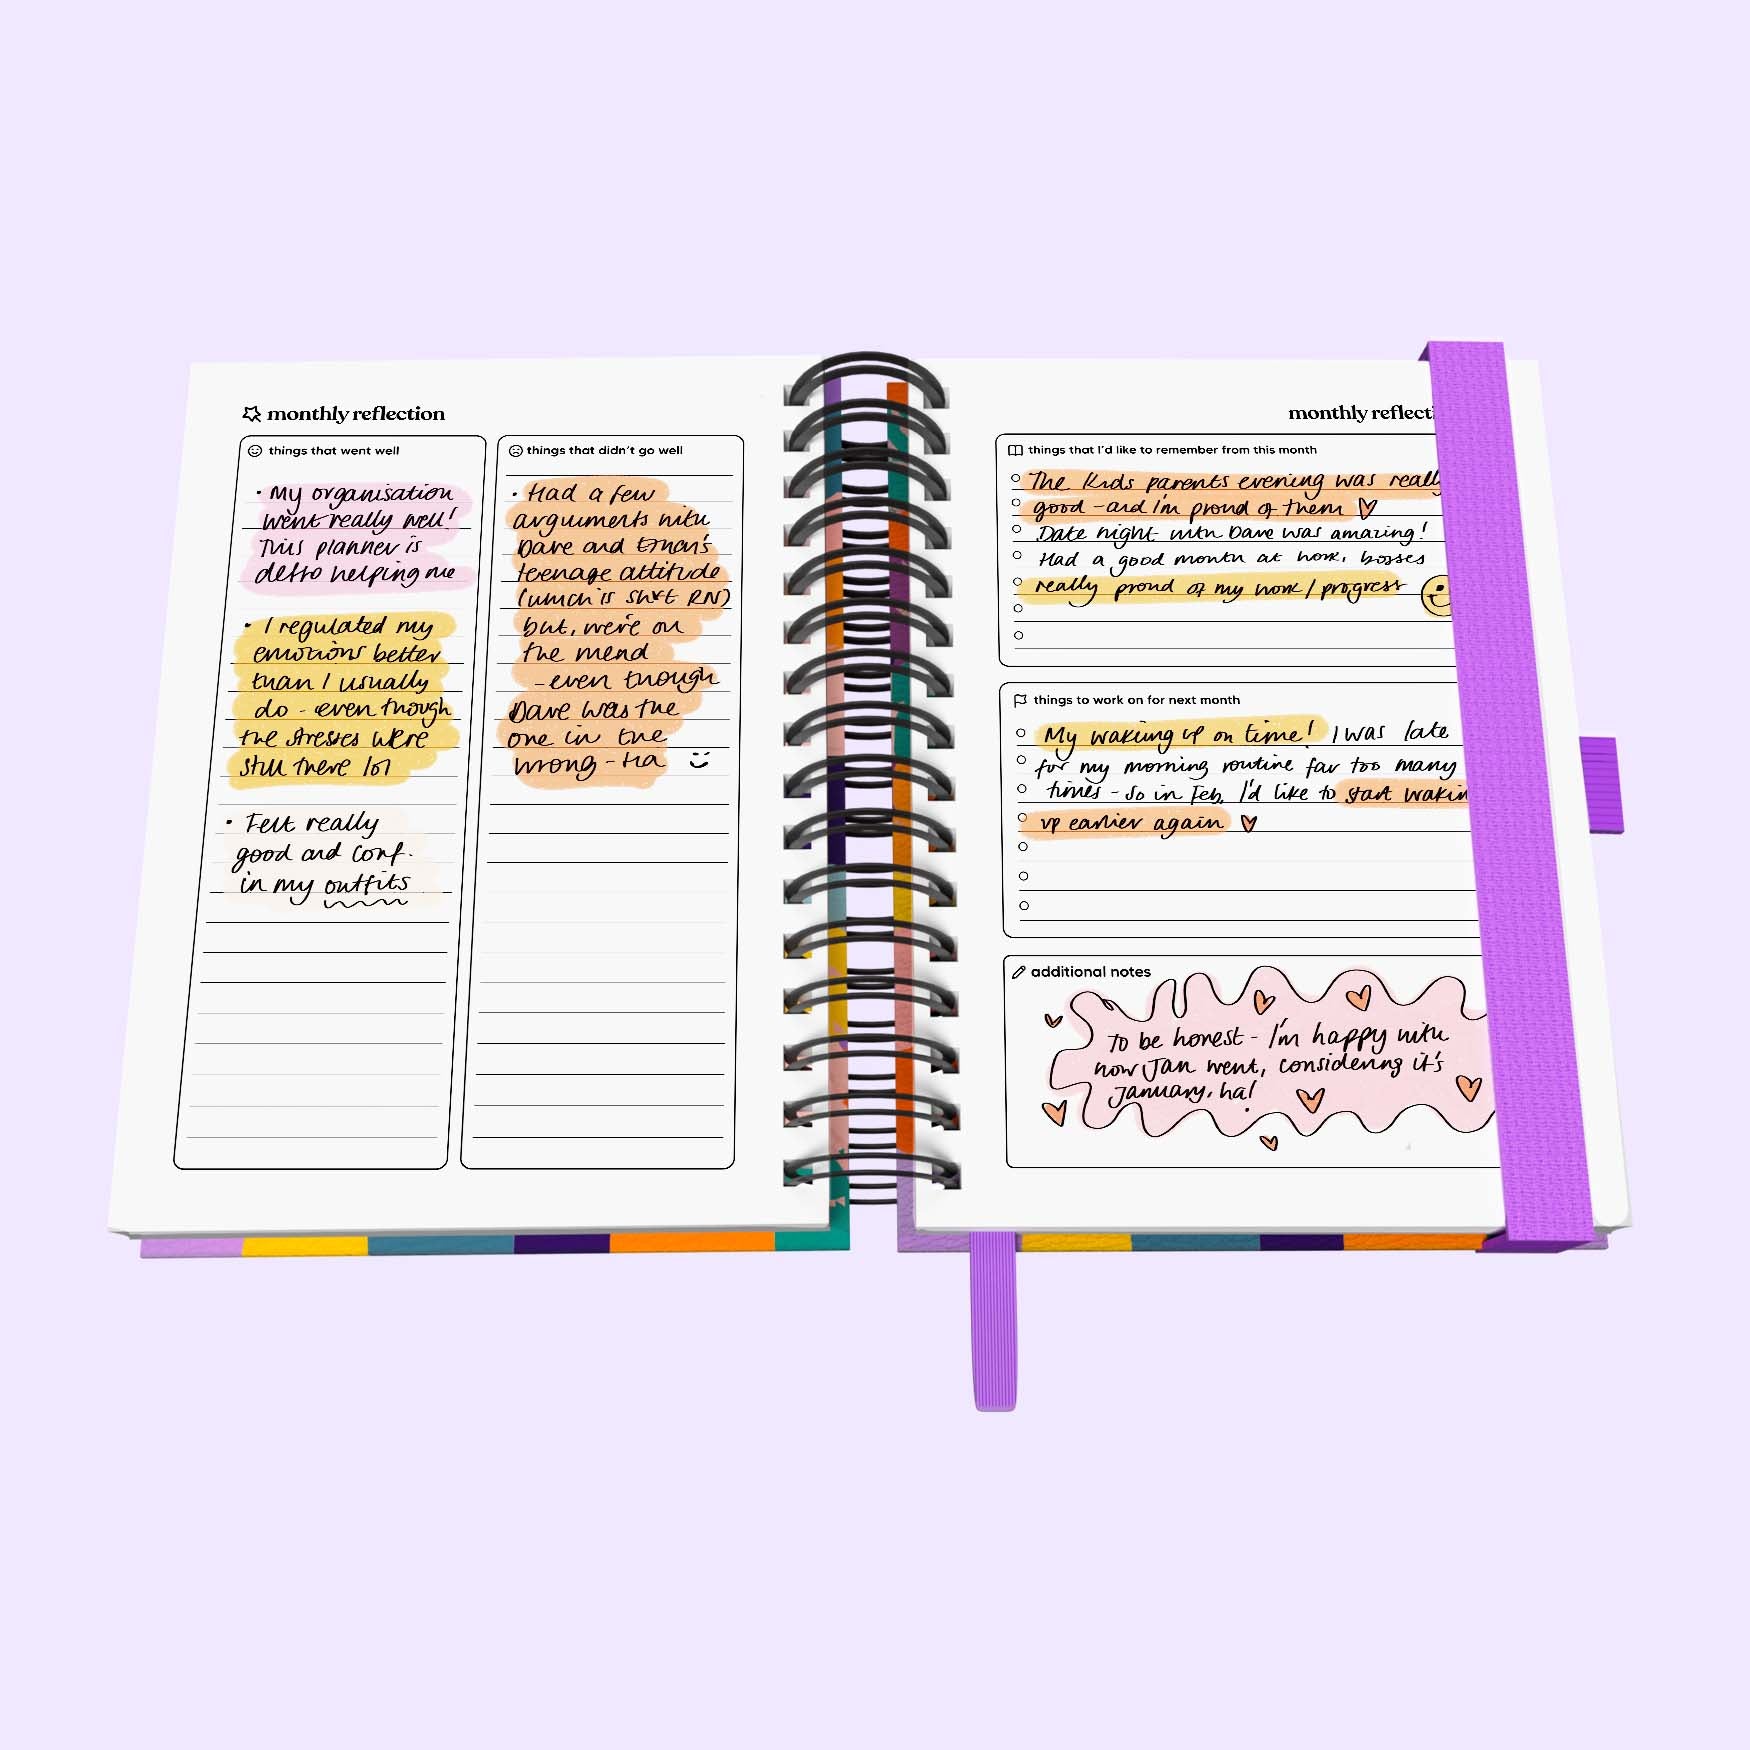 monthly reflection
things that went well
• My organisation
went really well!
This planner is
defo helping me
• I regulated my
emotions better
than I usually
do - even though
the stresses were
still there lol
• Felt really
good and conf.
in my outfits
things that didn't go well
• Had a few
arguments with
Dave and
teenage attitude
(which is sh*t RN)
but, we're on
the mend
- even though
Dave was the
one in the
wrong - Ha
monthly reflecti
things that I'd like to remember from this month
The kids parents evening was really
good - and I'm proud of them
Date night with Dave was amazing!
Had a good month at work, bosses
really proud of my work / progress
things to work on for next month
My waking up on time! I was late
for my morning routine far too many
times - so in Feb, I'd like to start wakin
up earlier again
additional notes
To be honest - I'm happy with
how Jan went, considering it's
January, ha!